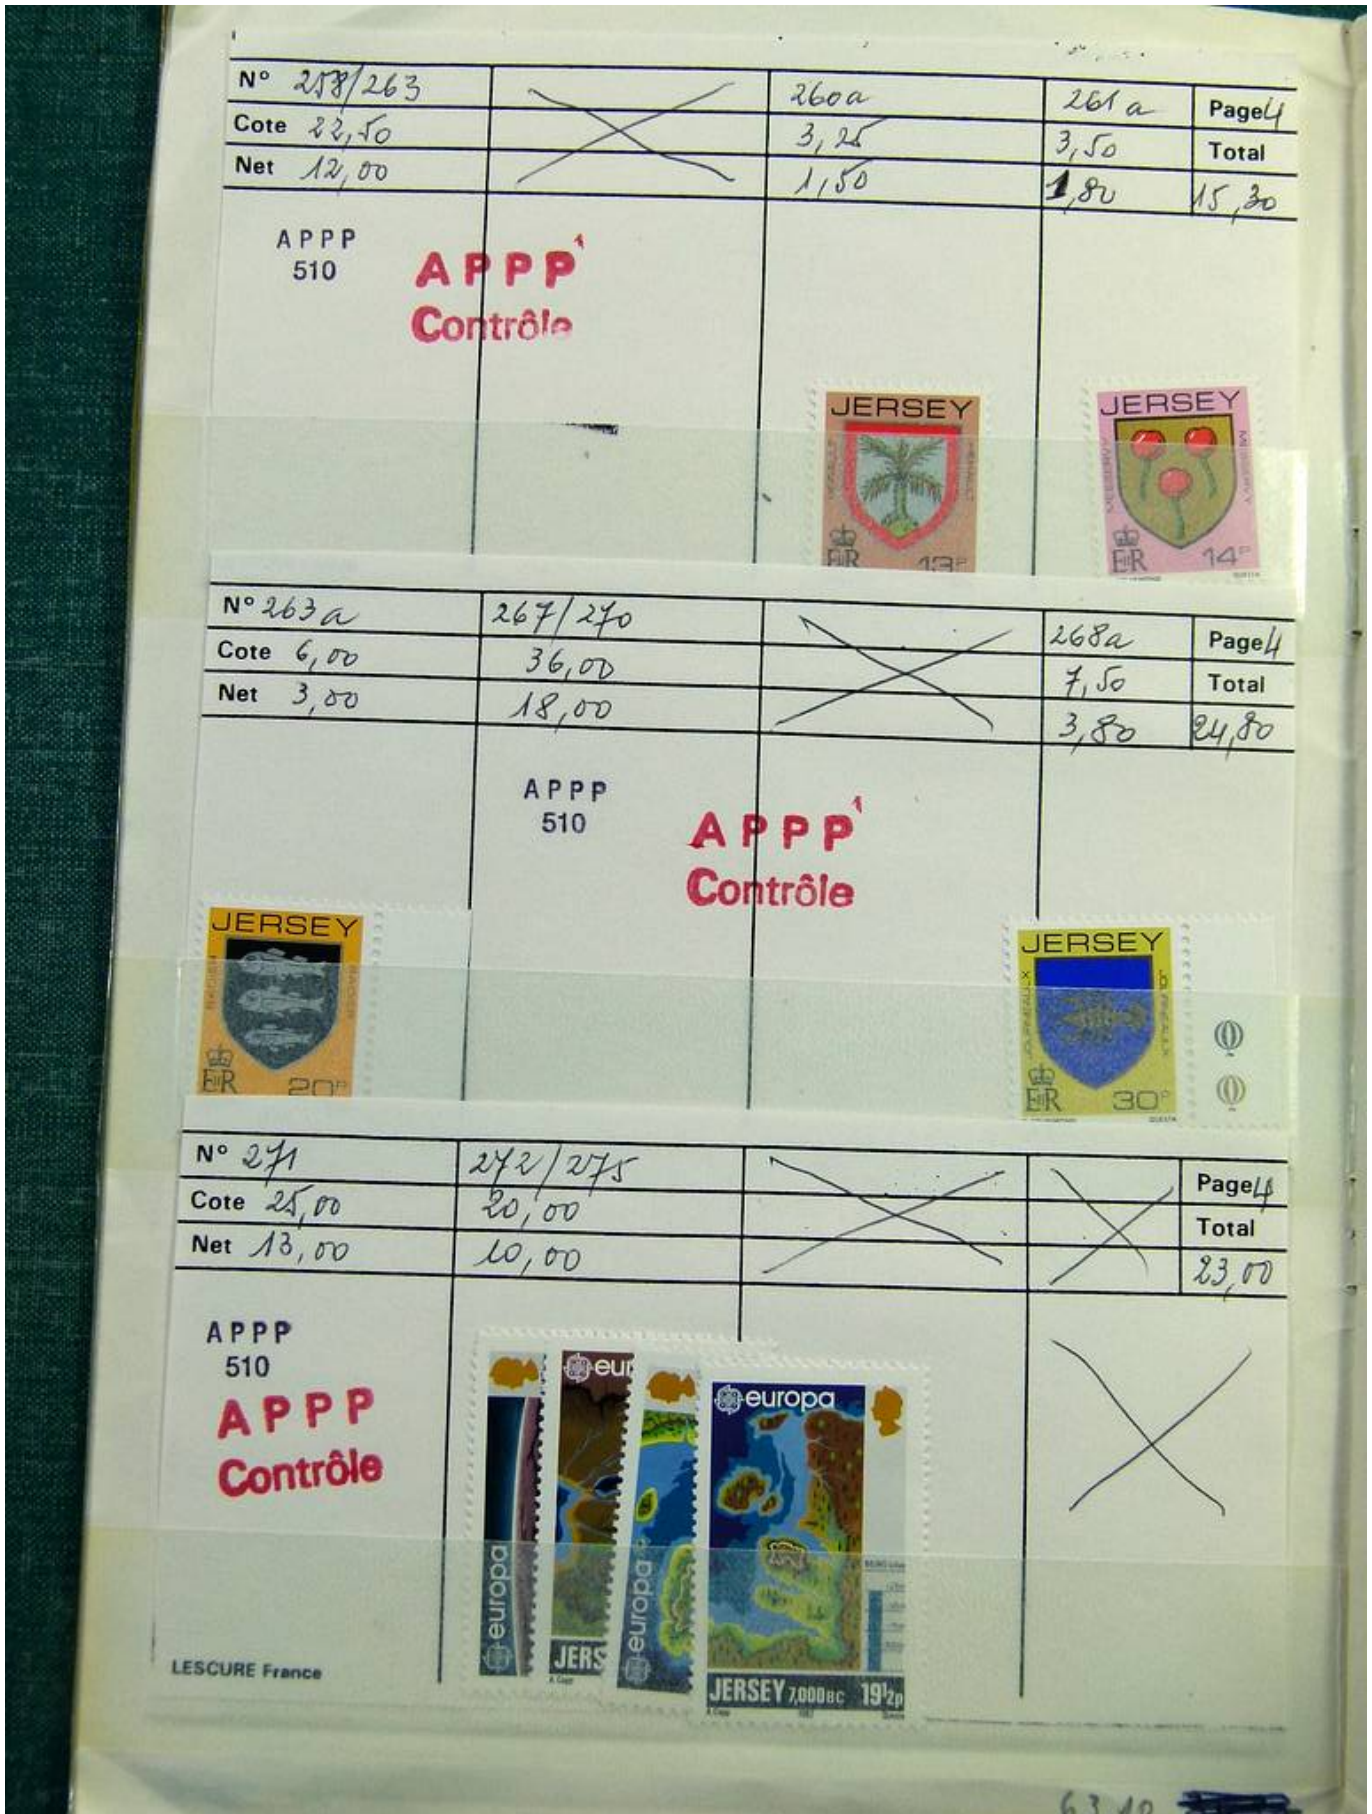 N° 258/263 260a 261a Page 4
Cote 22,50 3,25 3,50 Total
Net 12,00 1,50 1,80 15,30
APPP
510
APPP
Contrôle
JERSEY JERSEY
HERAULT MESSERVY MESSERVY
EIIR 13P EIIR 14P
QUESTA
N° 263a 267/270 268a Page 4
Cote 6,00 36,00 7,50 Total
Net 3,00 18,00 3,80 24,80
APPP
510
APPP
Contrôle
JERSEY JERSEY
JOURNEAULX JOURNEAULX
EIIR 20P EIIR 30P
QUESTA
N° 271 272/275 Page 4
Cote 25,00 20,00 Total
Net 13,00 10,00 23,00
APPP
510
APPP
Contrôle
eur europa
europa europa
JERS
JERSEY 7,000BC 19½p
LESCURE France
63 10